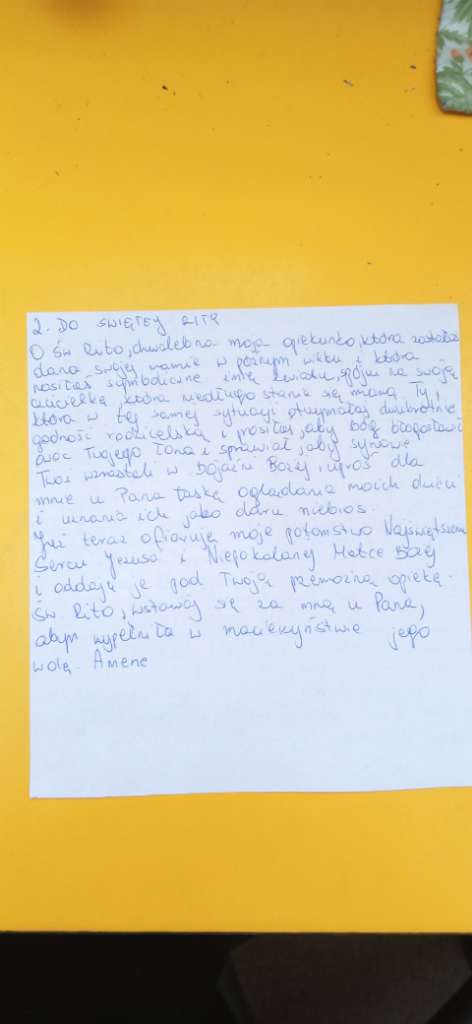 2. DO ŚWIĘTEJ RITY
O Św Rito, chwalebna moja opiekunko, która została
dana swojej mamie w późnym wieku i która
nosiłaś symboliczne imię kwiatu, spójrz na swoją
czcicielkę, która niedługo stanie się mamą. Ty,
która w tej samej sytuacji otrzymałaś dwukrotnie
godność rodzicielską i prosiłaś, aby bóg błogosławił
owoc Twojego łona i sprawiał, aby synowie
Twoi wzrastali w bojaźni Bożej, uproś dla
mnie u Pana łaskę oglądania moich dzieci
i uznania ich jako daru niebios.
Już teraz ofiaruję moje potomstwo Najświętszemu
Sercu Jezusa i Niepokalanej Matce Bożej
i oddaję je pod Twoją przemożną opiekę.
Św. Rito, wstawiaj się za mną u Pana,
abym wypełniła w macierzyństwie jego
wolę. Amene